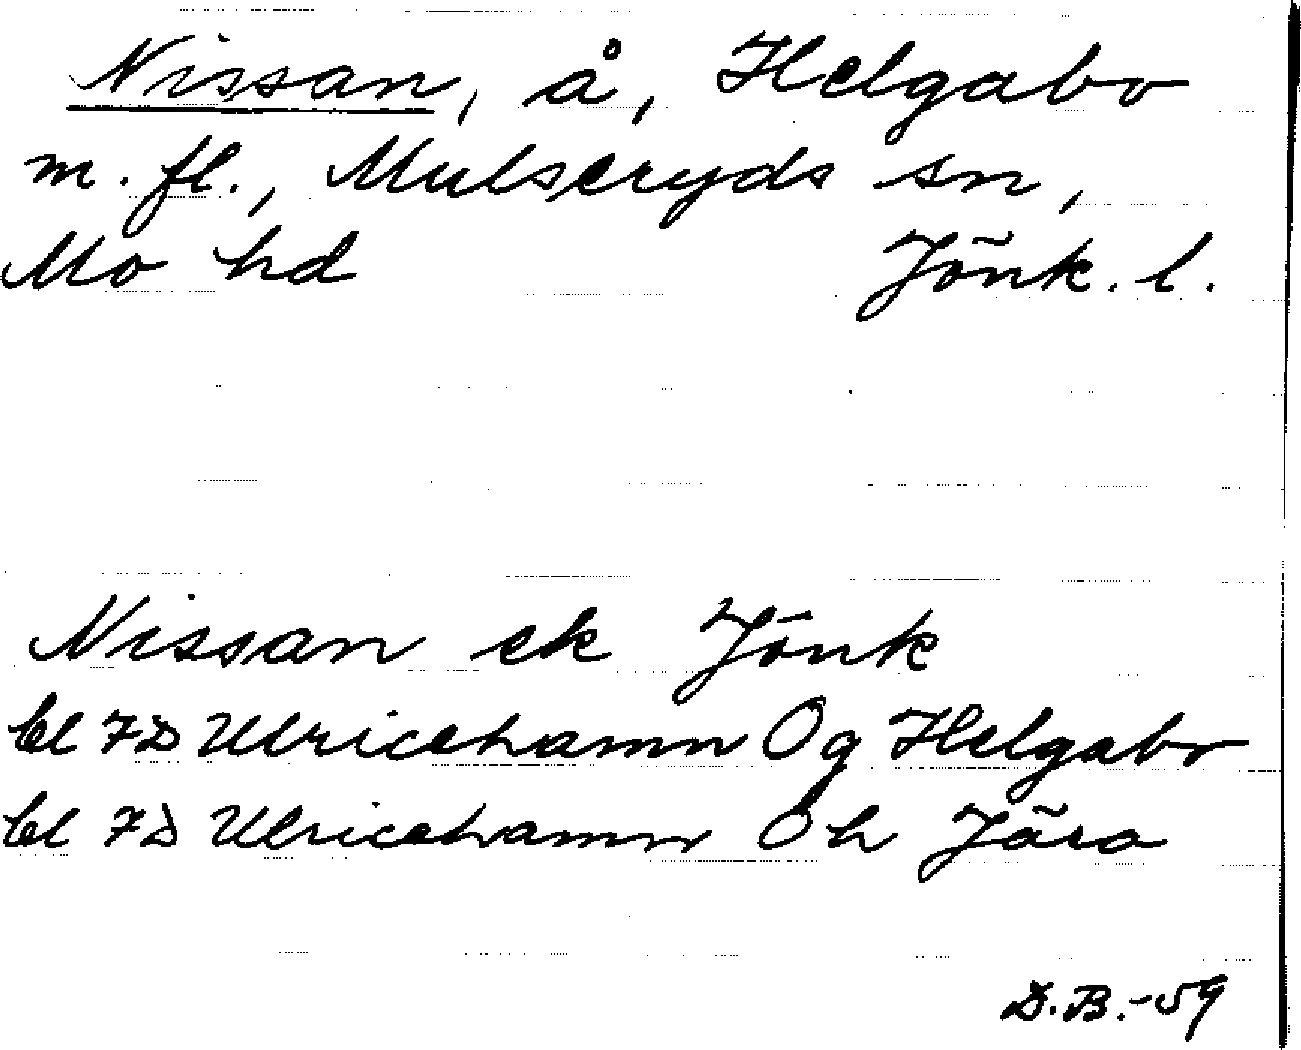 Nissan, å, Helgabo
m. fl., Mulseryds sn,
Mo hd Jönk. l.
Nissan ek Jönk
bl 7D Ulricehamn Og Helgabo
bl 7D Ulricehamn Öh Jära
D.B.-59